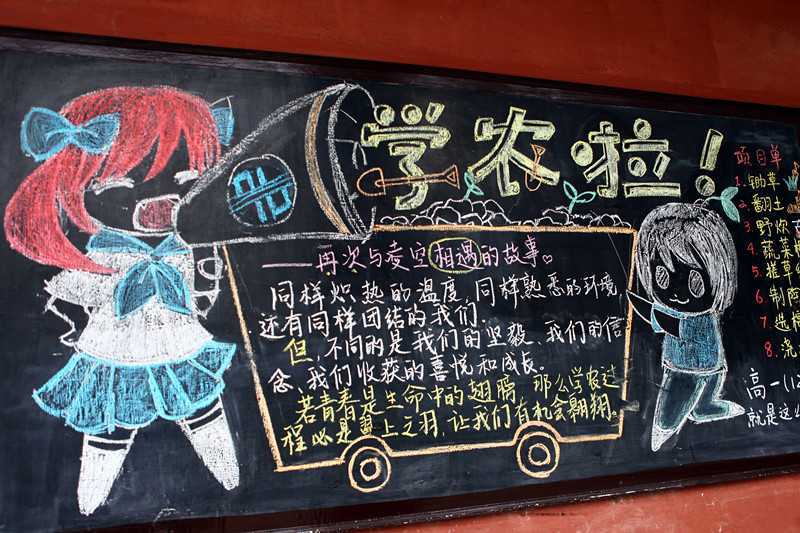 学农啦！
——再次与凌空相遇的故事
同样炽热的温度，同样熟悉的环境，
还有同样团结的我们。
但，不同的是我们的坚毅、我们的信
念、我们收获的喜悦和成长。
若青春是生命中的翅膀，那么学农过
程必是翼上之羽，让我们有机会翱翔。
项目单
1. 锄草
2. 翻土
3. 野炊
4. 蔬菜
5. 摧草
6. 制陶
7. 选
8. 浇
高一(12
就是这